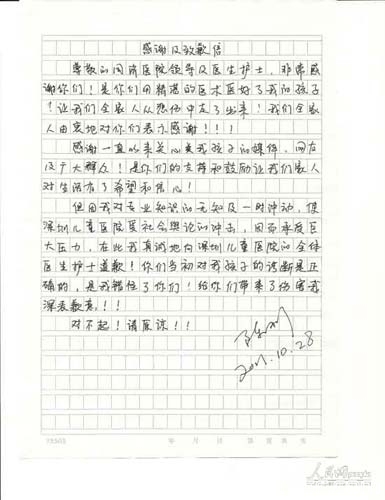 感谢及致歉信
尊敬的同济医院领导及医生护士,非常感
谢你们!是你们用精湛的医术医好了我的孩子
!让我们全家人从恐怖中走了出来!我们全家
人由衷地对你们表示感谢!!!
感谢一直以来关心我孩子的媒体,网友
及广大群众!是你们的支持和鼓励让我们家人
对生活有了希望和信心!
但因我对专业知识的无知及一时冲动,使
深圳儿童医院受社会舆论的冲击,因而承受巨
大压力,在此我真诚地向深圳儿童医院的全体
医生护士道歉!你们当初对我孩子的诊断是正
确的,是我错怪了你们!给你们带来了伤害我
深表歉意!!!
对不起!请原谅!!
2011.10.28
年 月 日 第 页 共 页
人民网